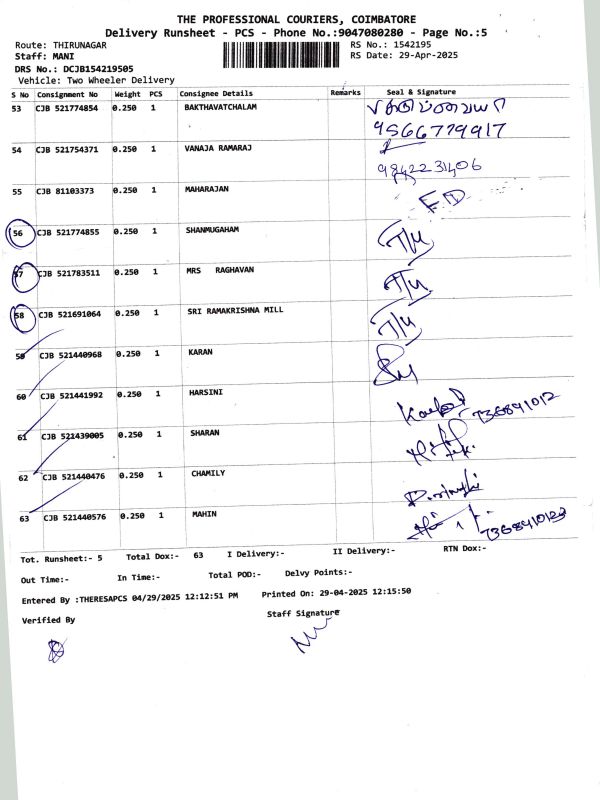 THE PROFESSIONAL COURIERS, COIMBATORE
Delivery Runsheet - PCS - Phone No.:9047080280 - Page No.:5
Route: THIRUNAGAR RS No.: 1542195
Staff: MANI RS Date: 29-Apr-2025
DRS No.: DCJB154219505
Vehicle: Two Wheeler Delivery
S No Consignment No Weight PCS Consignee Details Remarks Seal & Signature
53 CJB 521774854 0.250 1 BAKTHAVATCHALAM
9566779917
54 CJB 521754371 0.250 1 VANAJA RAMARAJ
9842231406
55 CJB 81103373 0.250 1 MAHARAJAN
56 CJB 521774855 0.250 1 SHANMUGHAM T/M
57 CJB 521783511 0.250 1 MRS RAGHAVAN T/M
58 CJB 521691064 0.250 1 SRI RAMAKRISHNA MILL T/M
59 CJB 521440968 0.250 1 KARAN
60 CJB 521441992 0.250 1 HARSINI
61 CJB 521439005 0.250 1 SHARAN
62 CJB 521440476 0.250 1 CHAMILY
63 CJB 521440576 0.250 1 MAHIN
Tot. Runsheet:- 5 Total Dox:- 63 I Delivery:- II Delivery:- RTN Dox:-
Out Time:- In Time:- Total POD:- Delvy Points:-
Entered By :THERESAPCS 04/29/2025 12:12:51 PM Printed On: 29-04-2025 12:15:50
Verified By Staff Signature